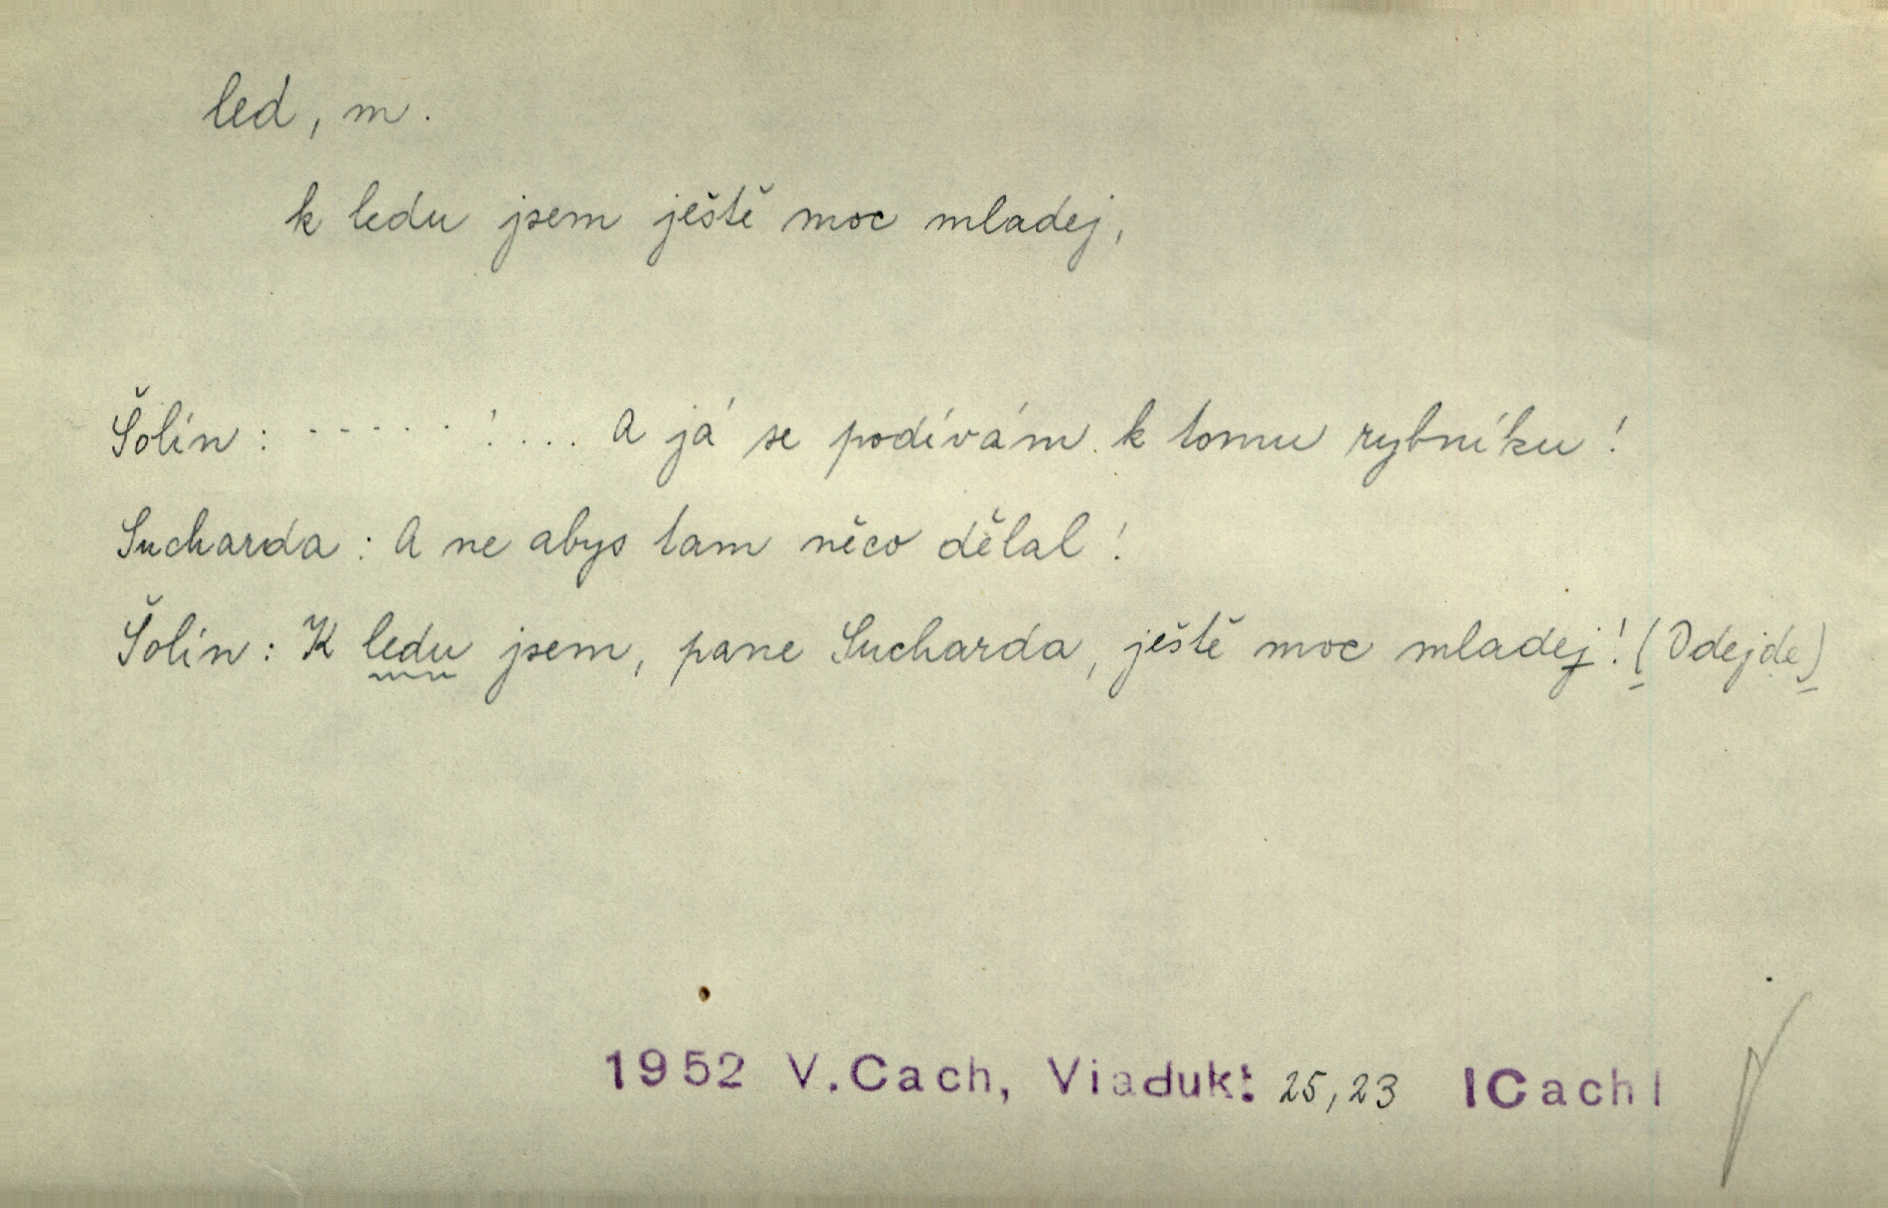 led, m.
k ledu jsem ještě moc mladej,
Šolín: - - - - - ! ... A já se podívám k tomu rybníku!
Sucharda: A ne abys tam něco dělal!
Šolín: K ledu jsem, pane Sucharda, ještě moc mladej! (Odejde)
1952 V.Cach, Viadukt 25,23 |Cach|